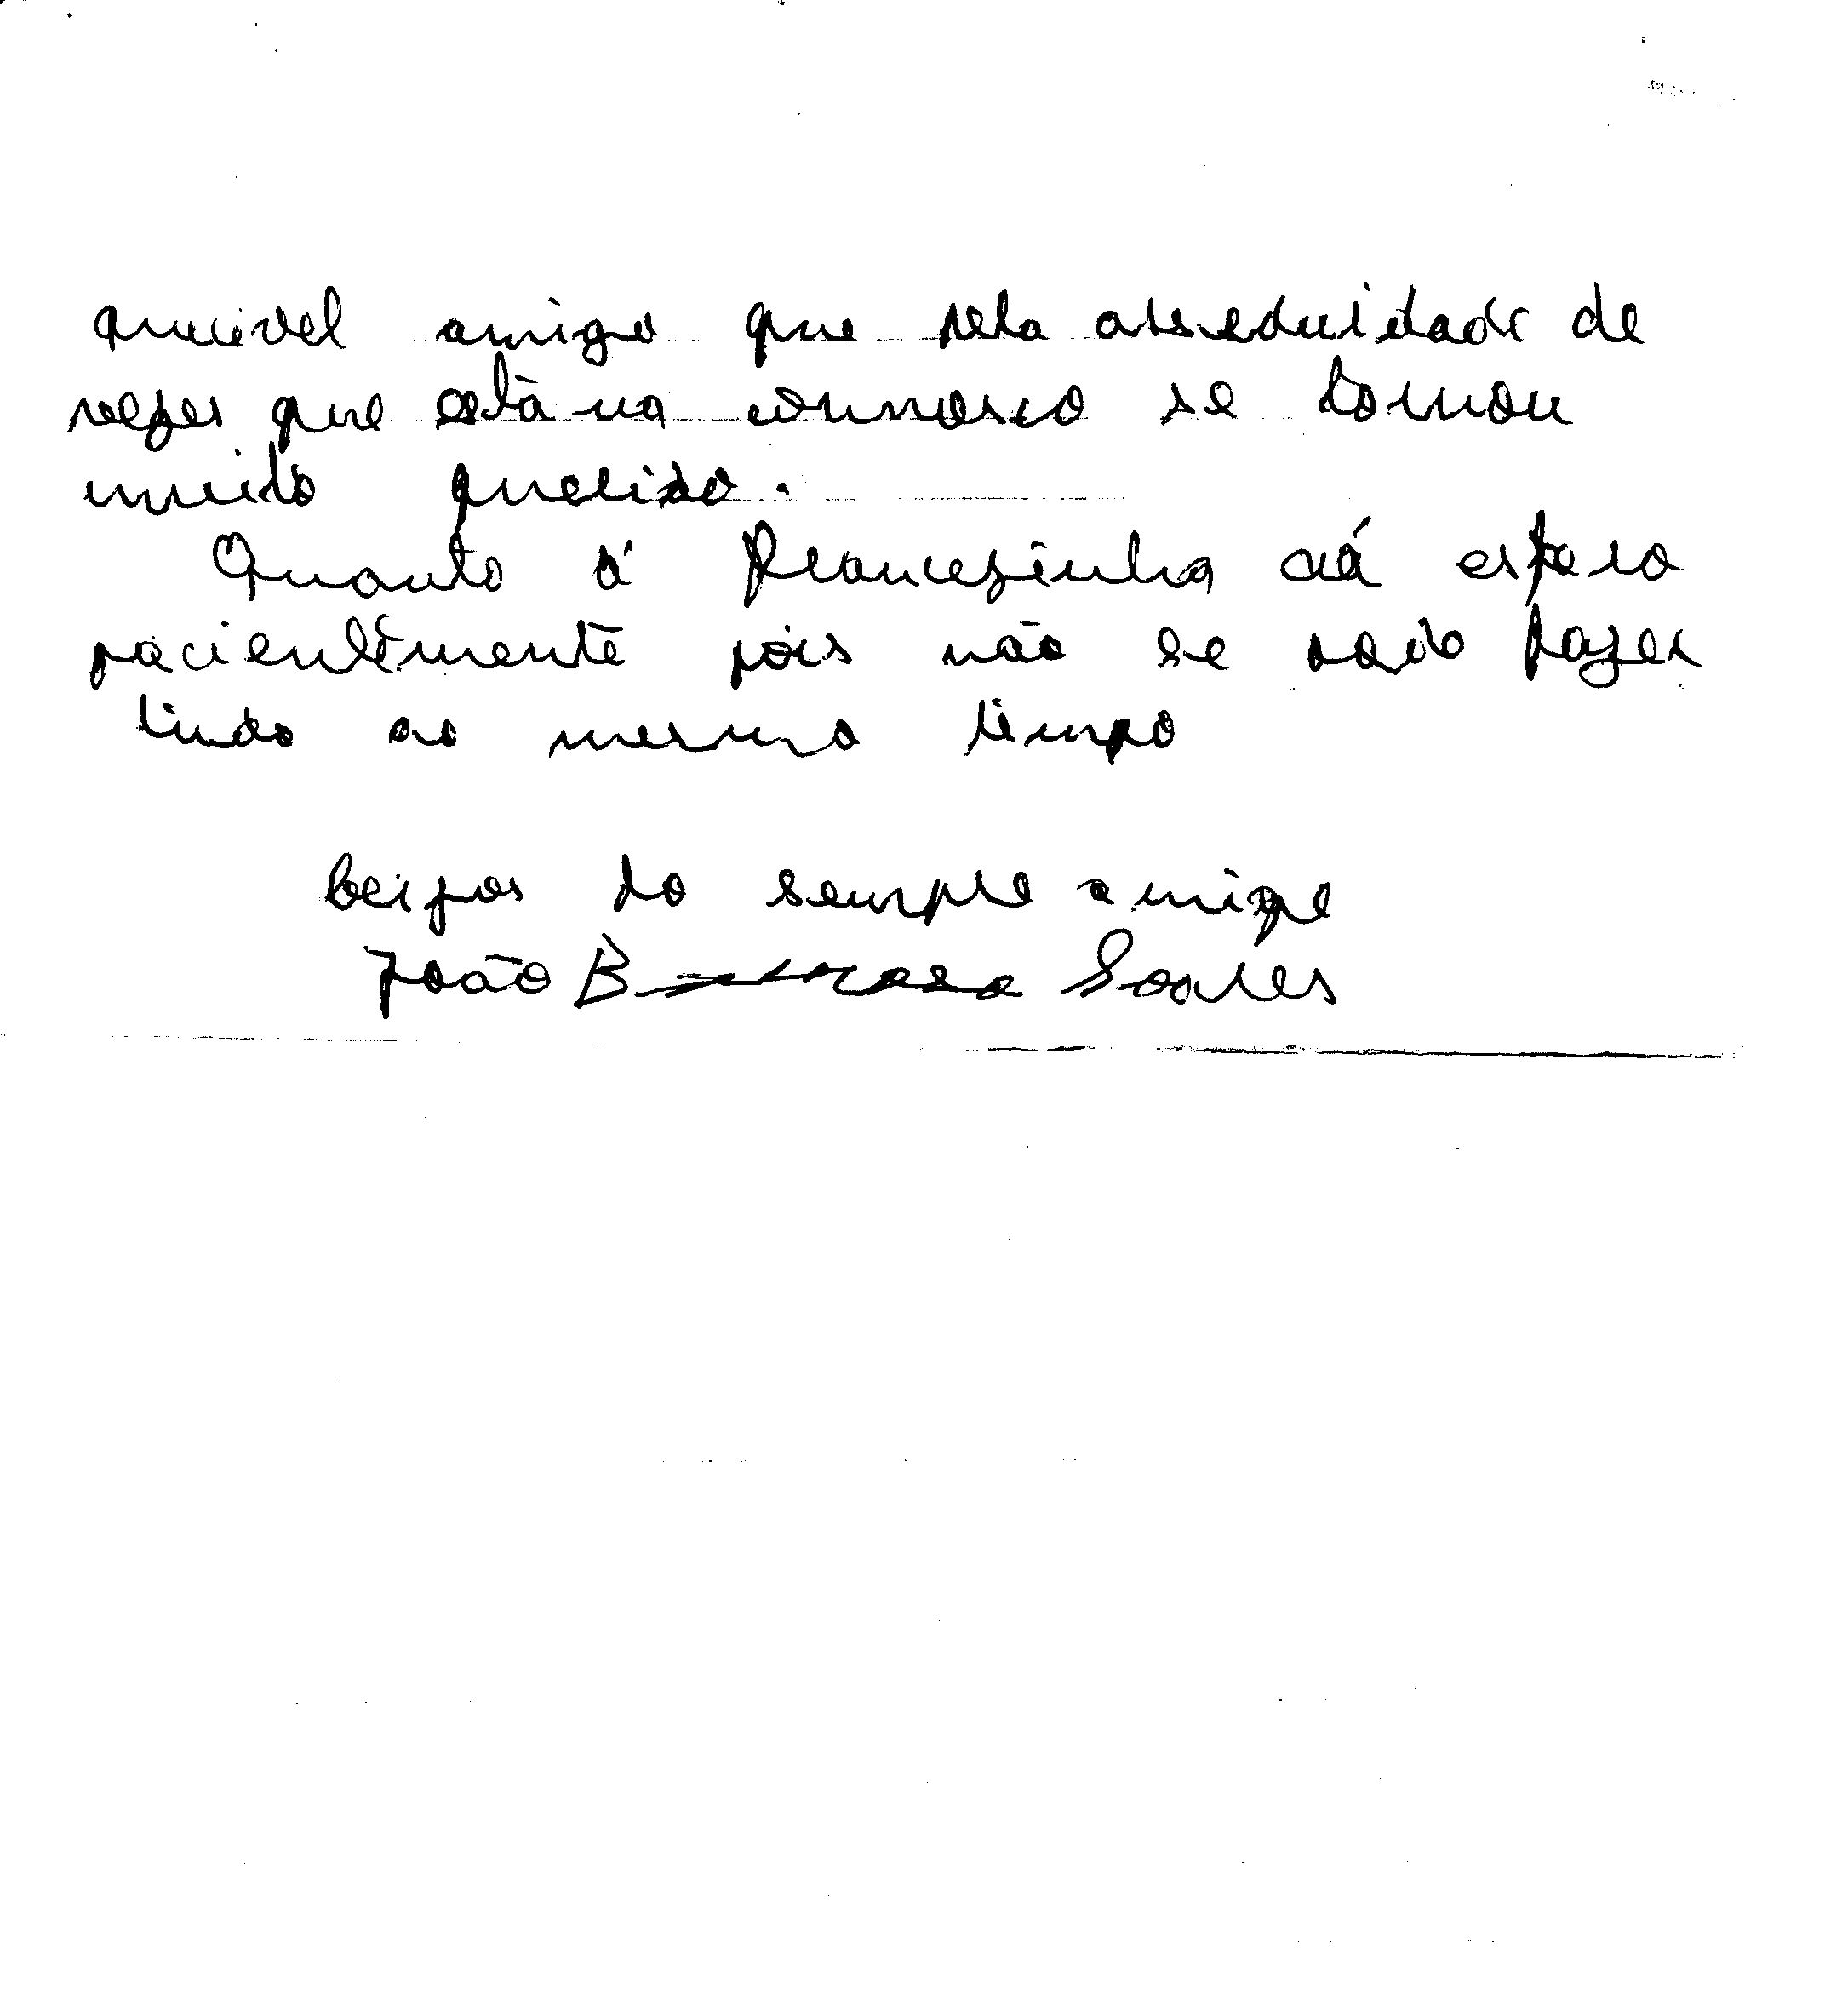 amigo que pela asseduidade de
vezes que estàva connosco se tornou
muito querido.
Quanto á francezinha cá espero
pacientemente pois não se pode fazer
tudo ao mesmo tempo
beijos do sempre amigo
João B Soares